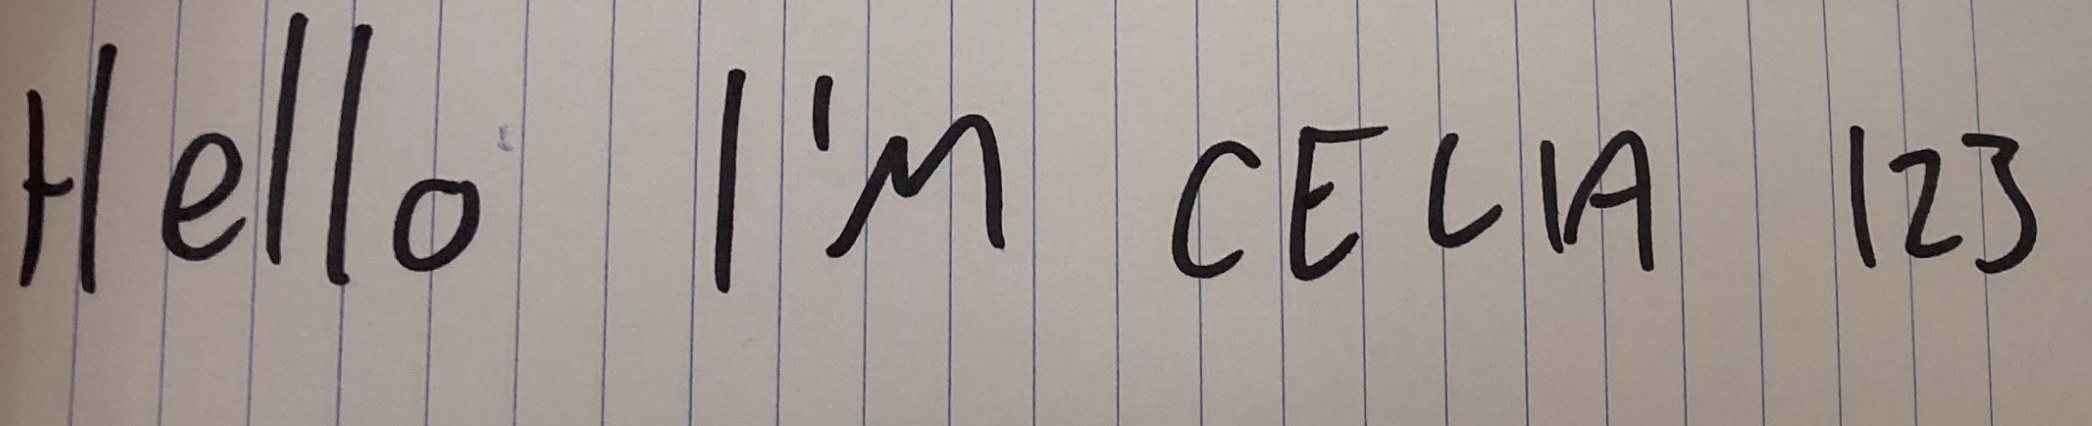 Hello I'M CELIA 123